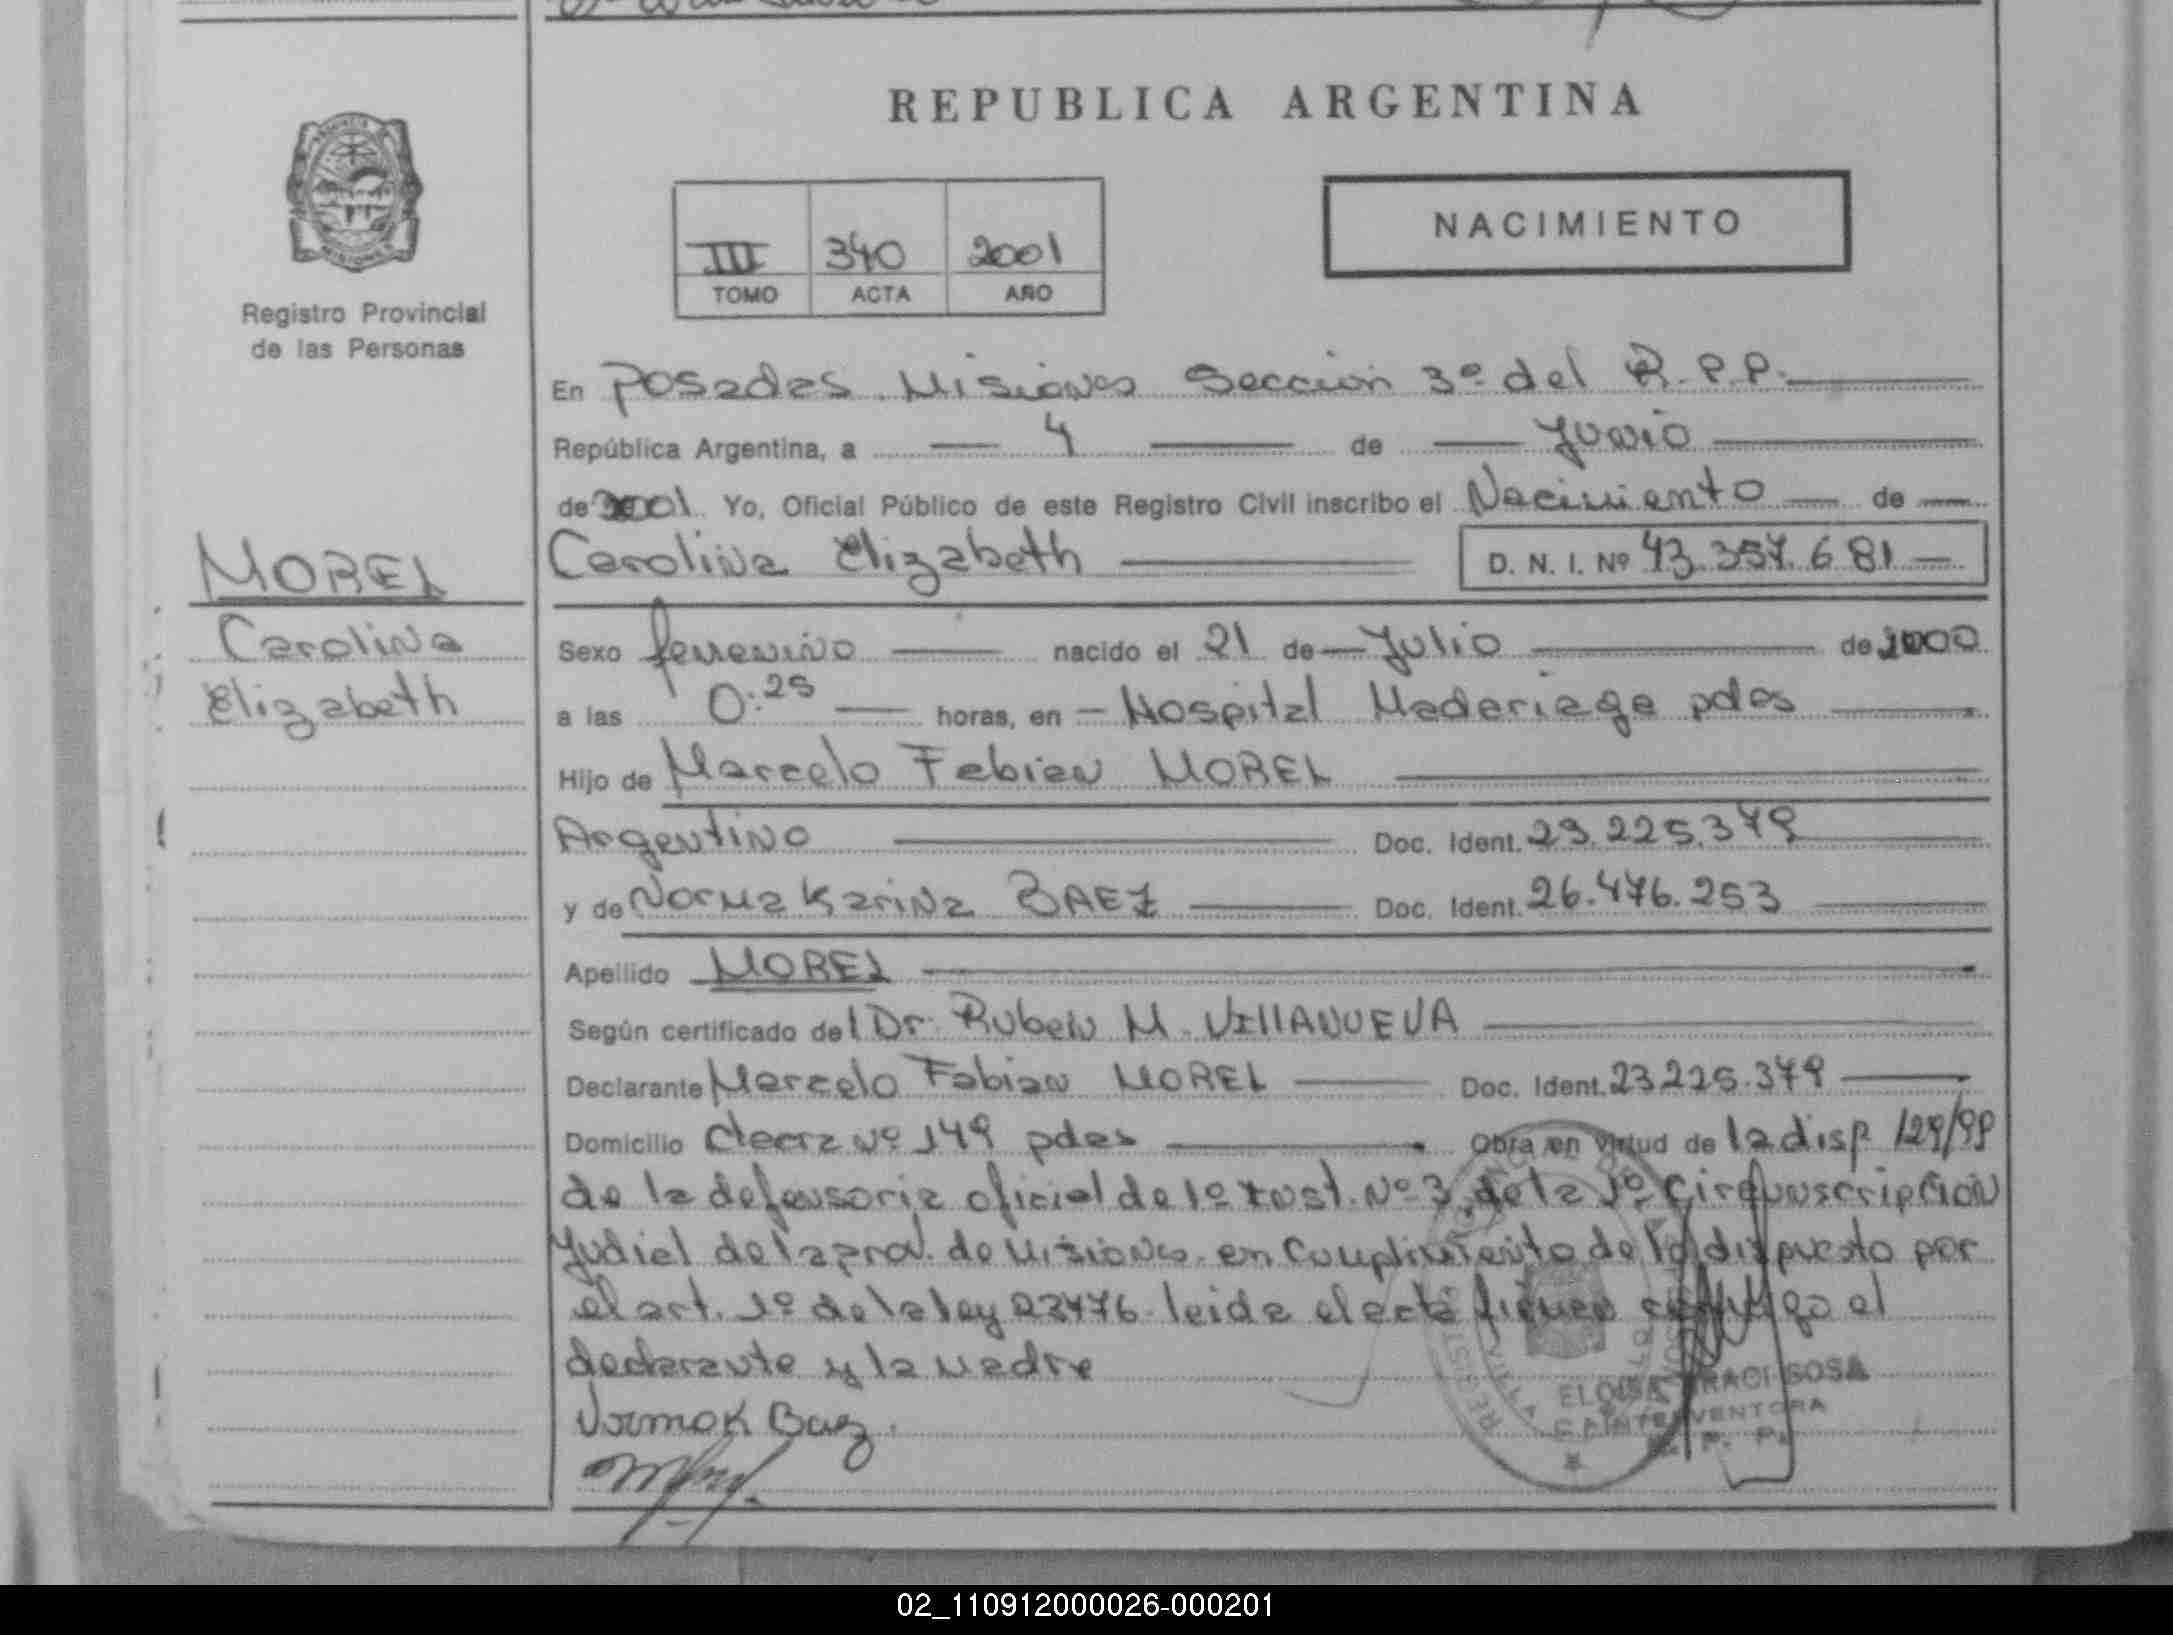 REPUBLICA ARGENTINA
NACIMIENTO
III 340 2001
TOMO ACTA AÑO
Registro Provincial
de las Personas
En Posadas Misiones Sección 3º del R.P.P.
República Argentina, a 4 de Junio
de 2001 Yo, Oficial Público de este Registro Civil inscribo el Nacimiento de
MOREL
Carolina Elizabeth D. N. I. Nº 43.357.681
Carolina
Elizabeth
Sexo femenino nacido el 21 de Julio de 2000
a las 0:25 horas, en Hospital Madariaga pdas
Hijo de Marcelo Fabian MOREL
Argentino Doc. Ident. 23.225.379
y de Norma Karina BAEZ Doc. Ident. 26.476.253
Apellido MOREL
Según certificado del Dr. Ruben M. VIllANUEVA
Declarante Marcelo Fabian MOREL Doc. Ident. 23225.379
Domicilio chacra Nº 149 pdas Obra en virtud de la disp 129/99
de la defensoria oficial de 1º Inst. Nº 3 de la 1º Circunscripcion
Judiel de la prov. de Misiones en cumplimiento de lo dispuesto por
el art. 1º de la ley 23476 leida el acta firman conmigo el
declarante y la madre
Norma K Baez
ELOISA SOSA
INTERVENTORA
R. P. P.
02_110912000026-000201